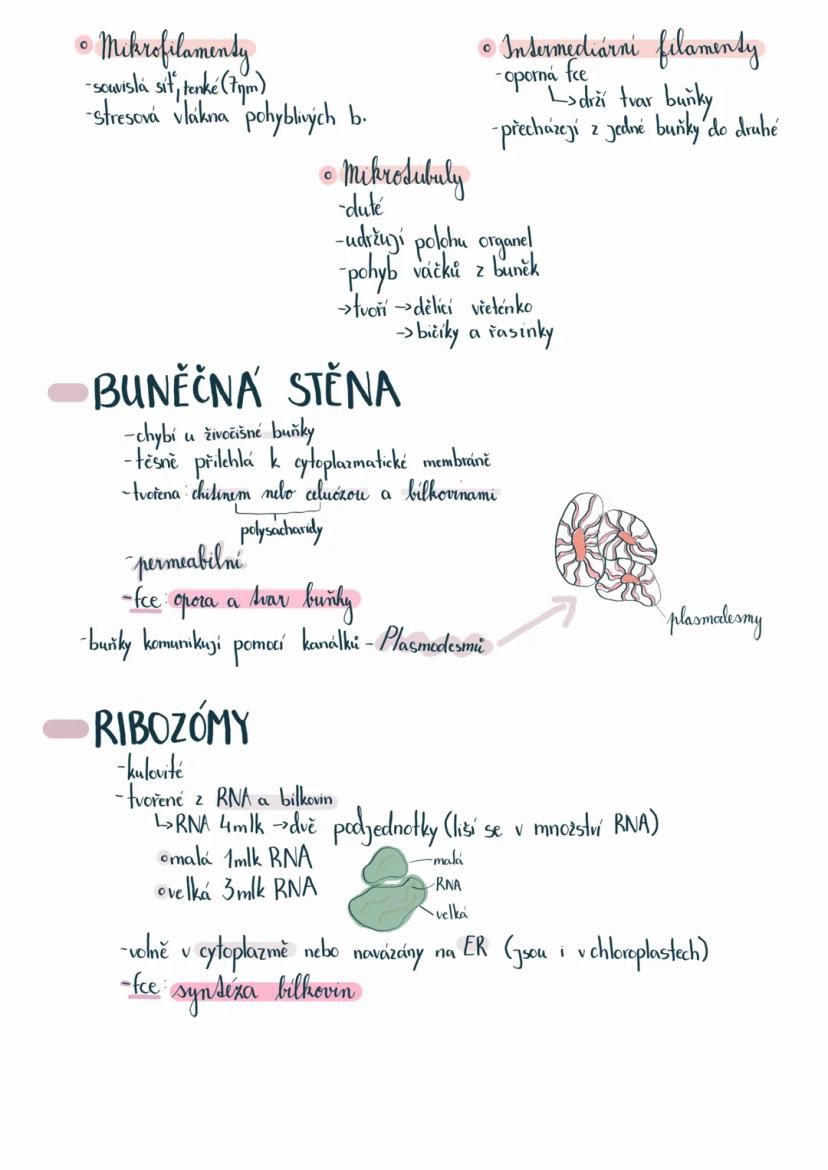 Mikrofilamenty
-souvislá síť, tenké (7ηm)
-stresová vlákna pohyblivých b.
Intermediární filamenty
-oporná fce
↳drží tvar buňky
-přecházejí z jedné buňky do druhé
Mikrotubuly
-duté
-udržují polohu organel
-pohyb váčků z buněk
→tvoří →dělící vřeténko
→bičíky a řasinky
BUNĚČNÁ STĚNA
-chybí u živočišné buňky
-těsně přilehlá k cytoplazmatické membráně
-tvořena: chitinem nebo celuózou a bílkovinami
polysacharidy
-permeabilní
-fce: opora a tvar buňky
-buňky komunikují pomocí kanálků - Plasmodesmů
plasmodesmy
RIBOZÓMY
-kulovité
-tvořené z RNA a bílkovin
↳RNA 4mlk →dvě podjednotky (liší se v množství RNA)
malá 1mlk RNA
velká 3mlk RNA
malá
RNA
velká
-volně v cytoplazmě nebo navázány na ER (jsou i v chloroplastech)
-fce: syntéza bílkovin